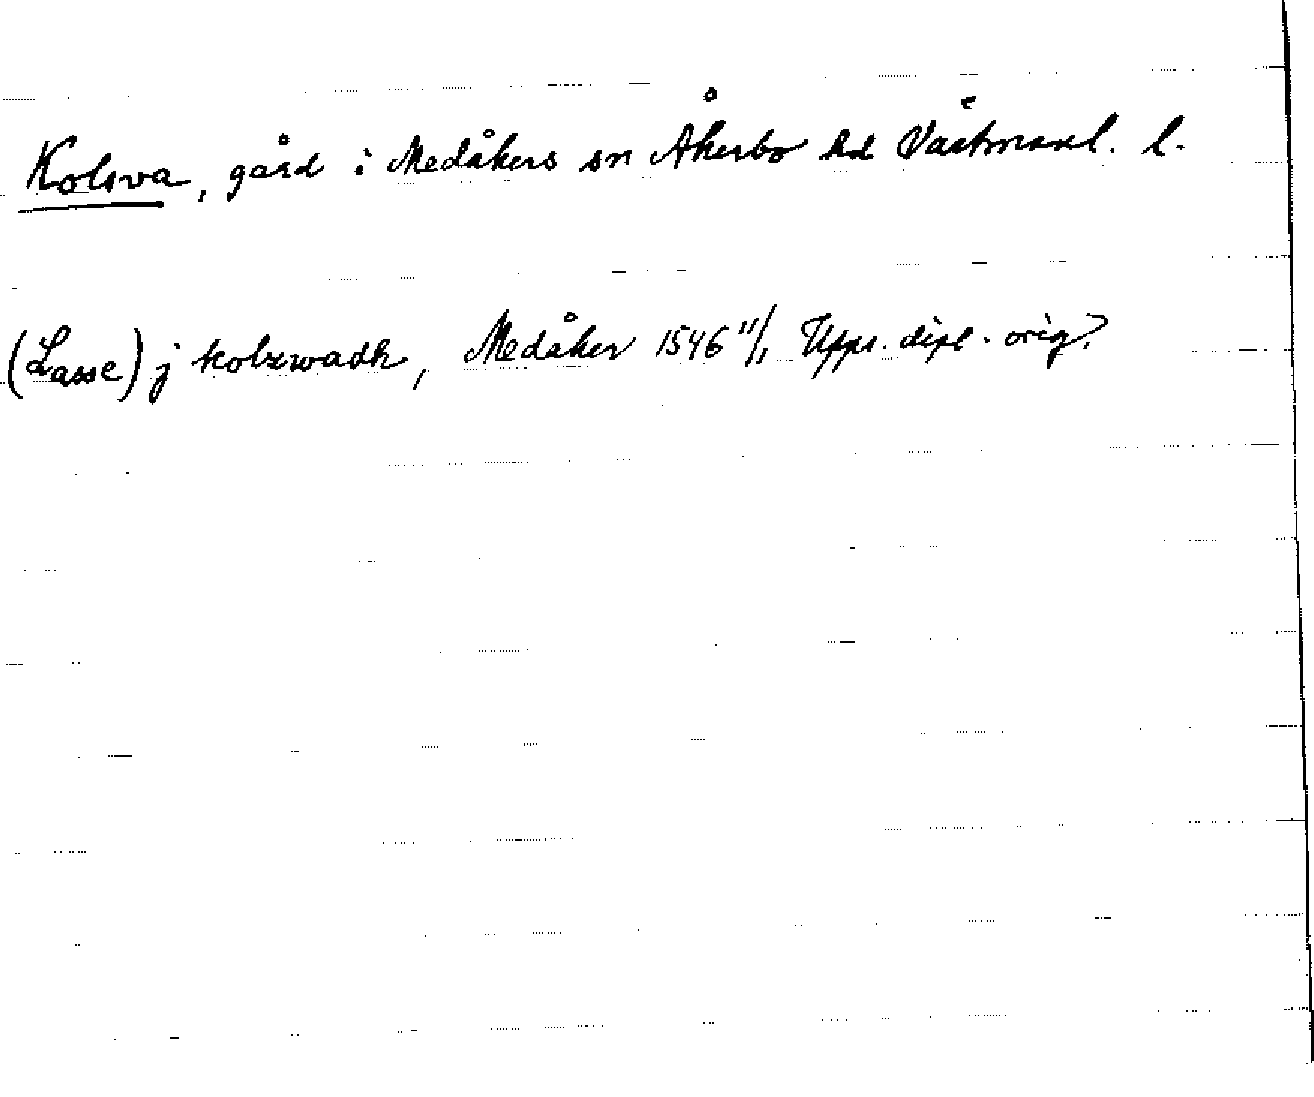 Kolsva, gård i Medåkers sn Åkerbo hd Västmanl. l.
(Lasse) j kolzwadh, Medåker 1546 11/1 Upps. dipl. orig?